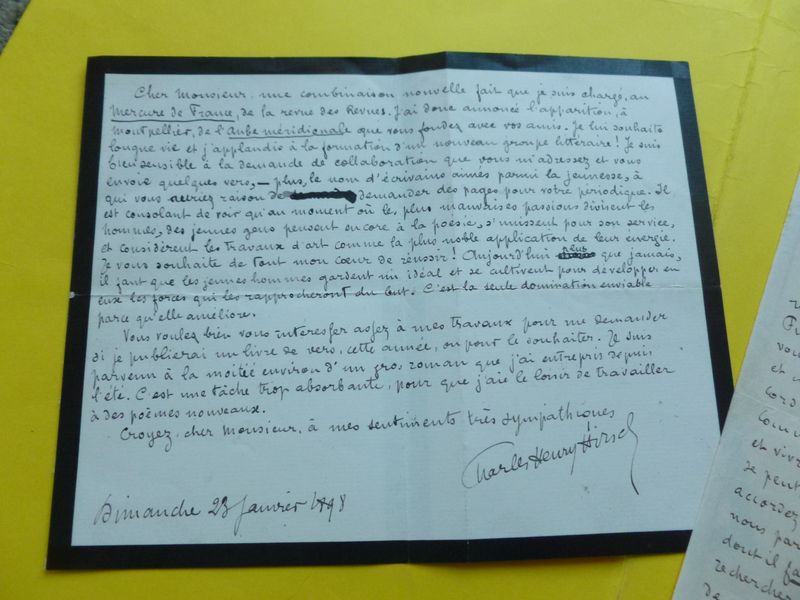 Cher Monsieur, une combinaison nouvelle fait que je suis chargé, au
Mercure de France, de la revue des Revues. J'ai donc annoncé l'apparition, à
Montpellier, de l'Aube méridionale que vous fondez avec vos amis. Je lui souhaite
longue vie et j'applaudis à la formation d'un nouveau groupe littéraire ! Je suis
bien sensible à la demande de collaboration que vous m'adressez et vous
envoie quelques vers, — plus, le nom d'écrivains aimés parmi la jeunesse, à
qui vous auriez raison de demander des pages pour votre périodique. Il
est consolant de voir qu'au moment où les plus mauvaises passions divisent les
hommes, des jeunes gens pensent encore à la poésie, s'unissent pour son service,
et considèrent les travaux d'art comme la plus noble application de leur énergie.
Je vous souhaite de tout mon cœur de réussir ! Aujourd'hui plus que jamais,
il faut que les jeunes hommes gardent un idéal et se cultivent pour développer en
eux les forces qui les rapprocheront du but. C'est la seule domination enviable
parce qu'elle améliore.
Vous voulez bien vous intéresser assez à mes travaux pour me demander
si je publierai un livre de vers, cette année, ou pour le souhaiter. Je suis
parvenu à la moitié environ d'un gros roman que j'ai entrepris depuis
l'été. C'est une tâche trop absorbante, pour que j'aie le loisir de travailler
à des poèmes nouveaux.
Croyez, cher Monsieur, à mes sentiments très sympathiques
Charles Henry Hirsch
Dimanche 23 janvier 1898
vou
et
cord
comm
et viv
se peut
accordez
nous par
dont il fa
rechercher
de